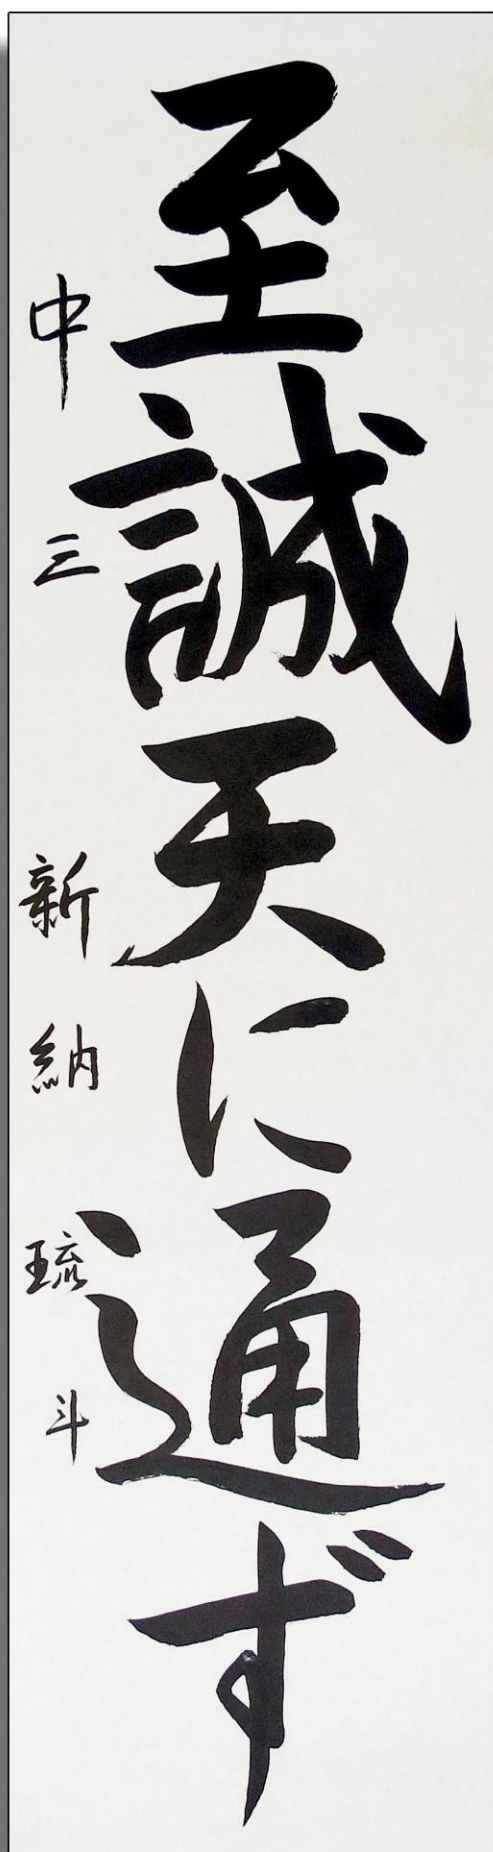 至誠天に通ず
中三 新納琉斗